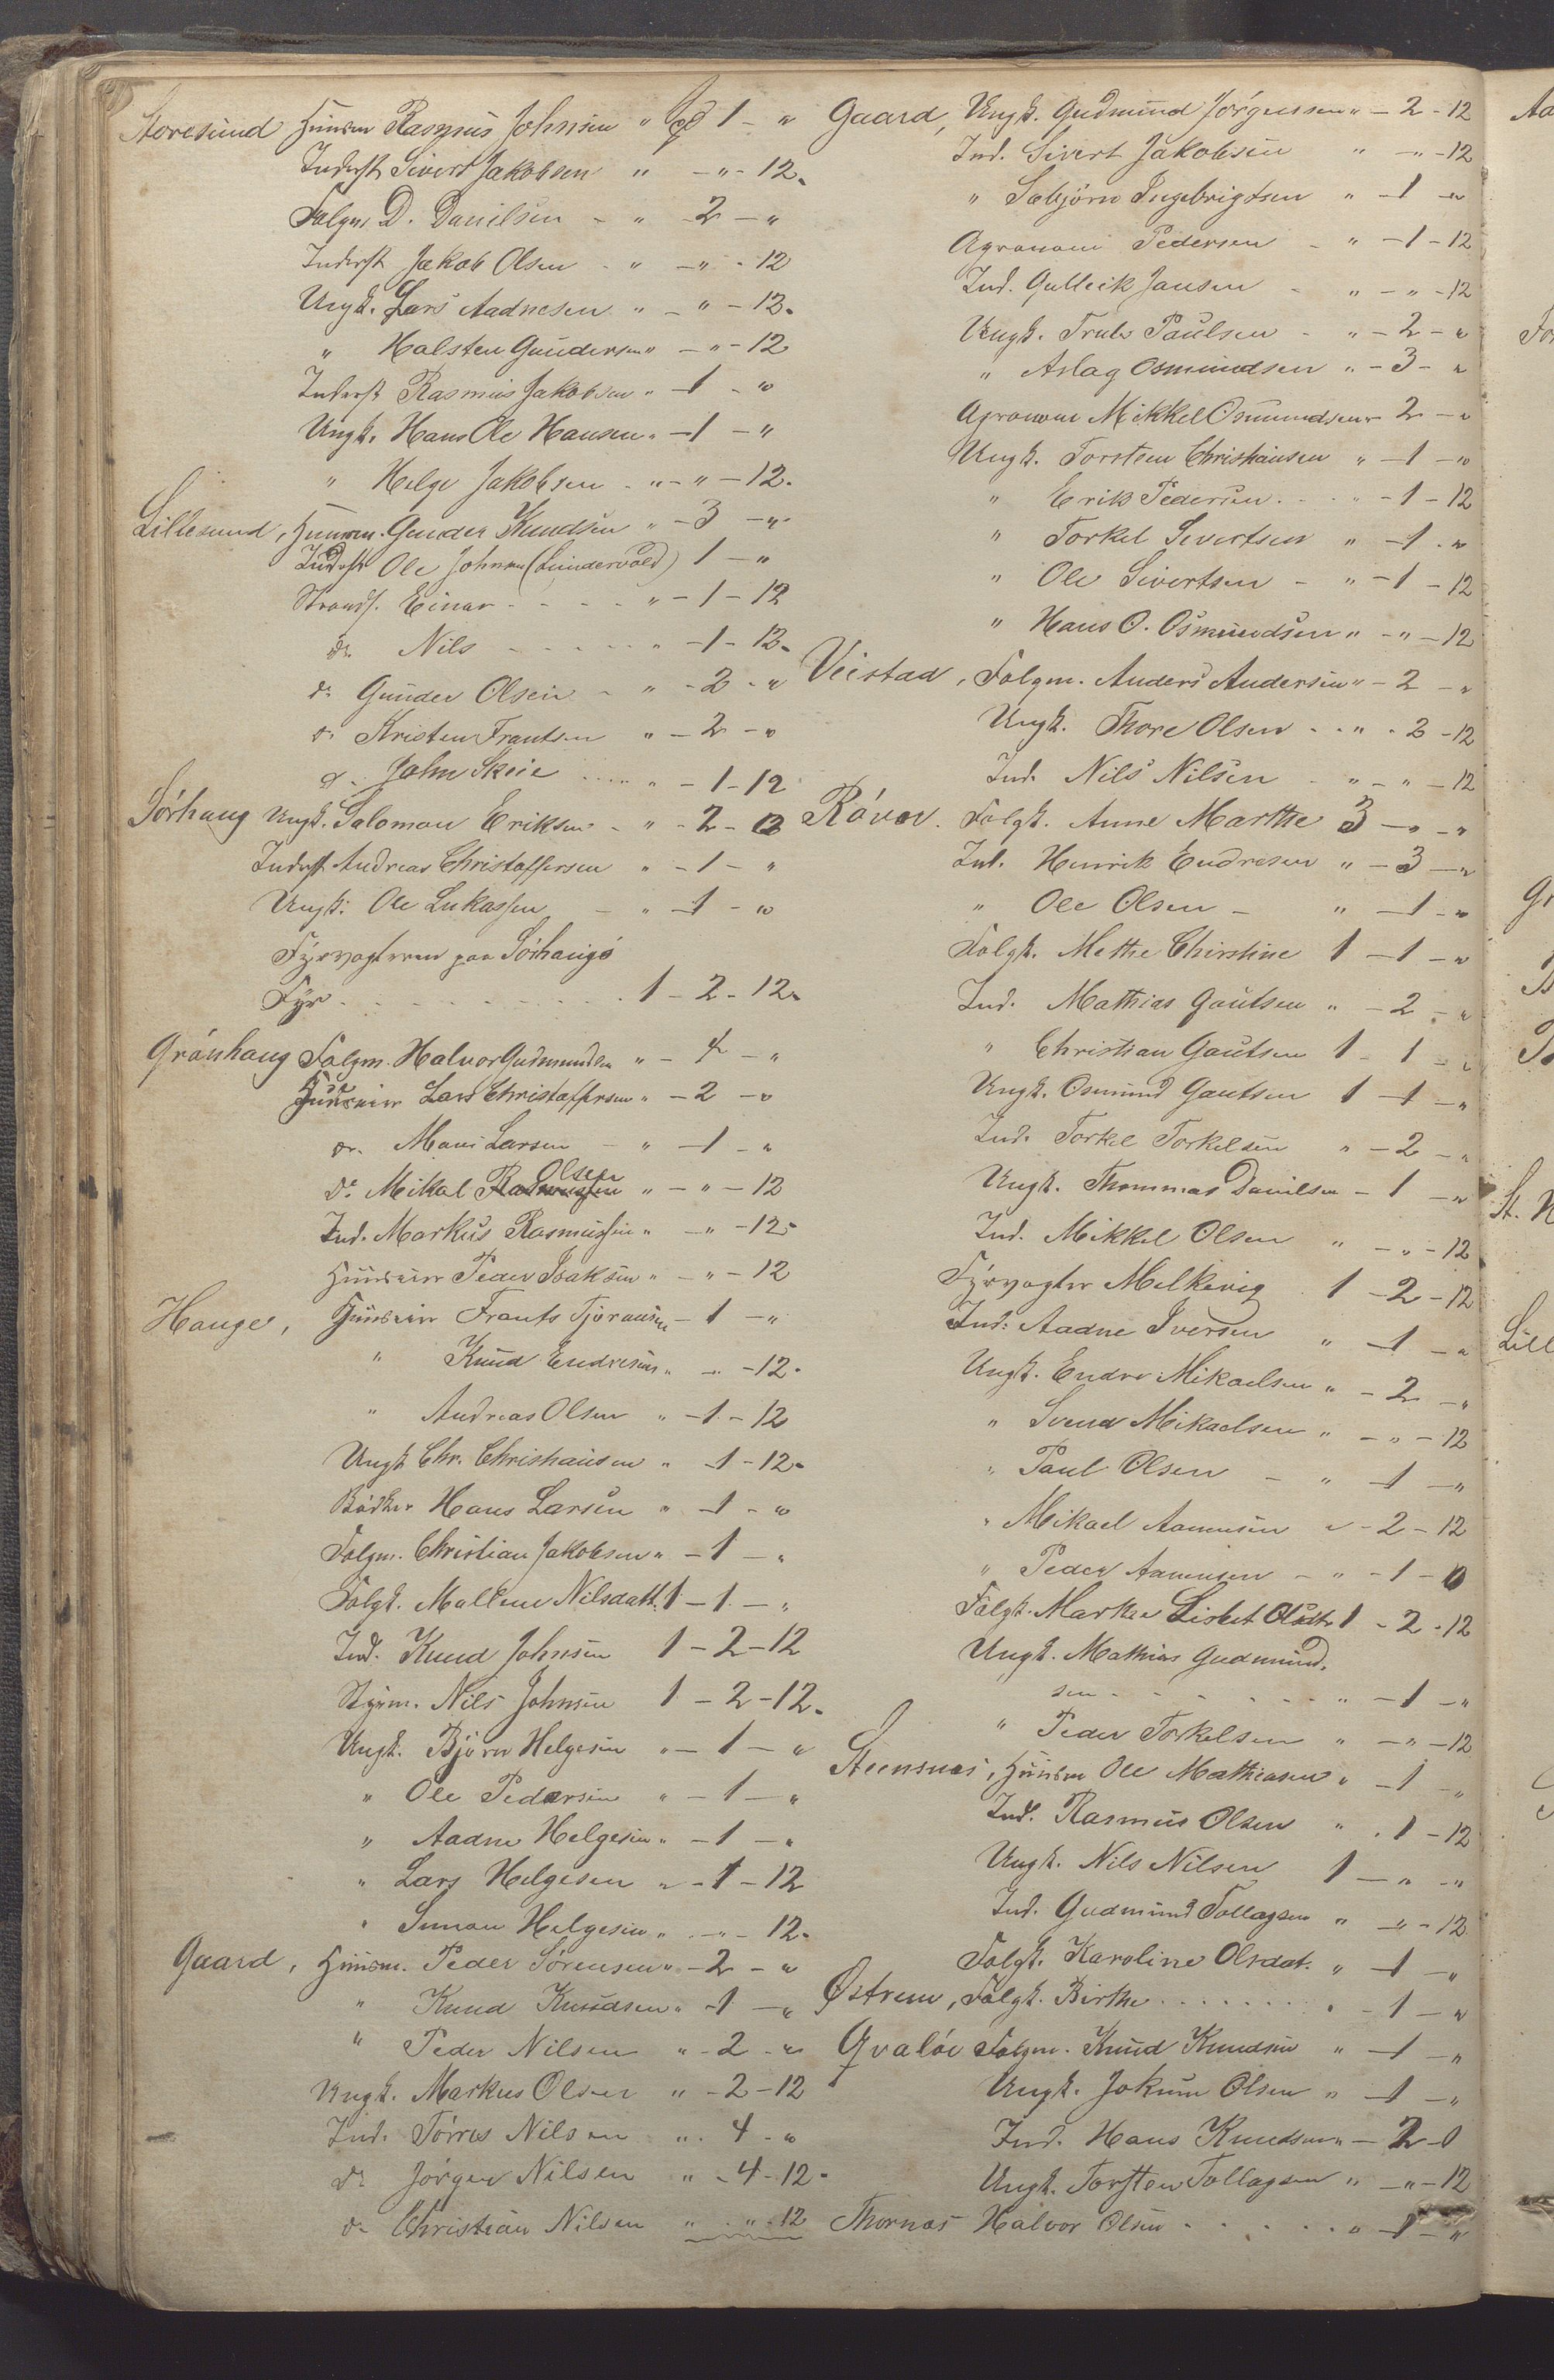 Storesund Huusm Rasmus Johnsen " 1 - "
Inderst Sivert Jakobsen " - " - 12.
Folgm D. Danilsen - " - 2 - "
Inderst Jakob Olsen - " - " - 12
Ungk. Lars Aadnesen " - " - 12.
" Halsten Gundersen " - " - 12
Inderst Rasmus Jakobsen " - 1 - "
Ungk. Hans Ole Hansen " - 1 - "
" Helge Jakobsen - " - " - 12.
Lillesund, Huusm. Gunder Knudsen " - 3 - "
Inderst Ole Johnsen (Lundervold) 1 - "
Strands. Einar - - - - " - 1 - 12
do Nils - - - - - " - 1 - 12.
do Gunder Olsen - " - 2 - "
do Kristen Frantsen " - 2 - "
do John Skeie .... " - 1 - 12
Sórhaug Ungk. Salomon Eriksen - " - 2 - 12
Inderst Andreas Christoffersen " - 1 - "
Ungk: Ole Lukassen - " - 1 - "
Fyrvogteren paa Sórhaugs
Fyr - - - - - - - - - - 1 - 2 - 12.
Grónhaug Folgm. Halvor Gudmundsen " - 4 - "
Lars Christoffersen " - 2 - "
do. Mons Larsen - " - 1 - "
Do Mikal Olsen " - " - 12
Ind. Markus Rasmussen " - " - 12.
Huusm Peder Isaksen " - " - 12
Hauge, Huusm Frants - 1 - "
" Knud Endresen " - " - 12.
" Andreas Olsen " - 1 - 12
Ungk Chr. Christiansen " - 1 - 12.
Bódker Hans Larsen " - 1 - "
Folgm. Christian Jakobsen " - 1 - "
Folgk. Mallene Nilsdatt. 1 - 1 - "
Ind. Knud Johnsen 1 - 2 - 12
Styrm. Nils Johnsen 1 - 2 - 12.
Ungk. Bjórn Helgesen " - 1 - "
" Ole Pedersen " - 1 - "
" Aadne Helgesen " - 1 - "
" Lars Helgesen " - 1 - 12
" Simon Helgesen " - " - 12.
Gaard, Huusm. Peder Sórensen " - 2 - "
" Knud Knudsen " - 1 - "
" Peder Nilsen " - 2 - "
Ungk. Markus Olsen " - 2 - 12
Ind. Tórres Nilsen " - 4 - "
do Jórgen Nilsen " - 4 - 12.
do Christian Nilsen " " - 12
Gaard, Ungk. Gudmund Jórgensen " - 2 - 12
Ind. Sivert Jakobsen " - " - 12
" Sæbjórn Ingebrigtsen " - 1 - "
Agronom Pedersen - " - 1 - 12
Ind. Gulleik Jansen - " - " - 12
Ungk. Truls Paulsen - " - 2 - "
" Aslag Osmundsen " - 3 - "
Agronom Mikkel Osmundsen " 2 - "
Ungk. Torstein Christiansen " - 1 - "
" Erik Pedersen - - " - 1 - 12
" Torkel Sivertsen " - 1 - "
" Ole Sivertsen - " - 1 - 12
" Hans O. Osmundsen " - " - 12
Veistad, Folgm. Anders Andersen " - 2 - "
Ungk. Thore Olsen - - " - 2 - 12
Ind. Nils Nilsen - " - " - 12
Róvær. Folgk. Anne Marthe 3 - " - "
Ind. Henrik Endresen " - 3 - "
" Ole Olsen - " - 1 - "
Folgk. Mette Christine 1 - 1 - "
Ind. Mathias Gautsen " - 2 - "
" Christian Gautsen 1 - 1 - "
Ungk. Osmund Gautsen 1 - 1 - "
Ind. Torkel Torkelsen " - 2 - "
Ungk. Thommas Danilsen - 1 - "
Ind. Mikkel Olsen " - " - 12
Fyrvogter Melkevig 1 - 2 - 12
Ind: Aadne Iversen " - 1 - "
Ungk. Endre Mikaelsen " - 2 - "
" Svend Mikaelsen " - " - 12
" Paul Olsen - " - 1 - "
" Mikael Aamusen " - 2 - 12
" Peder Aamusen - " - 1 - 0
Folgk. Marthe Lisbet Olsdtr 1 - 2 - 12
Ungk. Mathias Gudmund,
sen - - - - - - - " - 1 - "
" Peder Torkelsen " - " - 12
Steensnes, Huusm Ole Mathiasen " - 1 - "
Ind. Rasmus Olsen " - 1 - 12
Ungk. Nils Nilsen 1 - " - "
Ind. Gudmund Tollagsen " - " - 12
Folgk. Karoline Olsdat. " - 1 - "
Østrem, Folgk. Birthe . . . . . . . . - 1 - "
Qvalóe Folgm. Knud Knudsen " - 1 - "
Ungk. Jokum Olsen " - 1 - "
Ind. Hans Knudsen " - 2 - 0
Ungk. Torsten Tollagsen " - " - 12
Thornæs Halvor Olsen - - - - - " - 1 - "